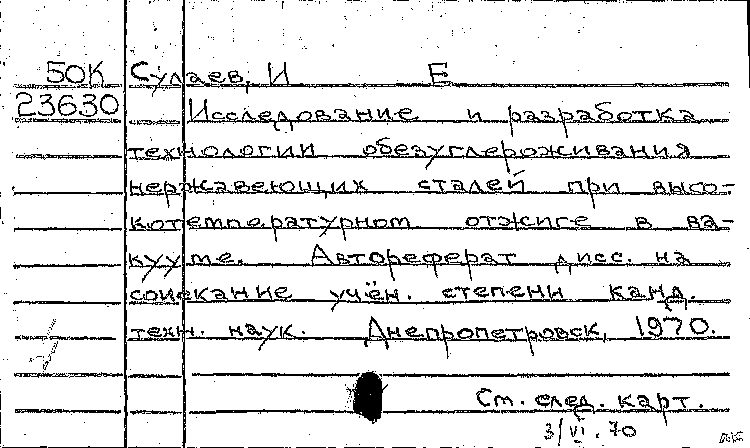 50К Сулаев, И Е
23630 Исследование и разработка
технологии обезуглероживания
нержавеющих сталей при высо-
котемпературном отжиге в ва-
кууме. Автореферат дисс. на
соискание учён. степени канд.
техн. наук. Днепропетровск, 1970.
См. след. карт.
3/VI.70